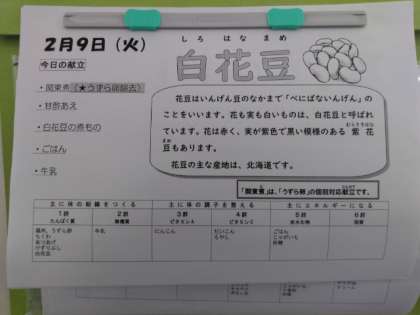 2月9日（火）
しろはなまめ
白花豆
今日の献立
・関東煮（★うずら卵除去）
・甘酢あえ
・白花豆の煮もの
・ごはん
・牛乳
花豆はいんげん豆のなかまで「べにばないんげん」の
ことをいいます。花も実も白いものは、白花豆と呼ばれ
ています。花は赤く、実が紫色で黒い模様のある 紫 花
豆もあります。
花豆の主な産地は、北海道です。
「関東煮」は、「うずら卵」の個別対応献立です。
主に体の組織をつくる 主に体の調子を整える 主にエネルギーになる
1群 2群 3群 4群 5群 6群
たんぱく質 無機質 ビタミンA ビタミンC 炭水化物 脂質
鶏肉、うずら卵 牛乳 にんじん だいこん ごはん
ちくわ もやし じゃがいも
あつあげ 砂糖
けずりぶし
白花豆